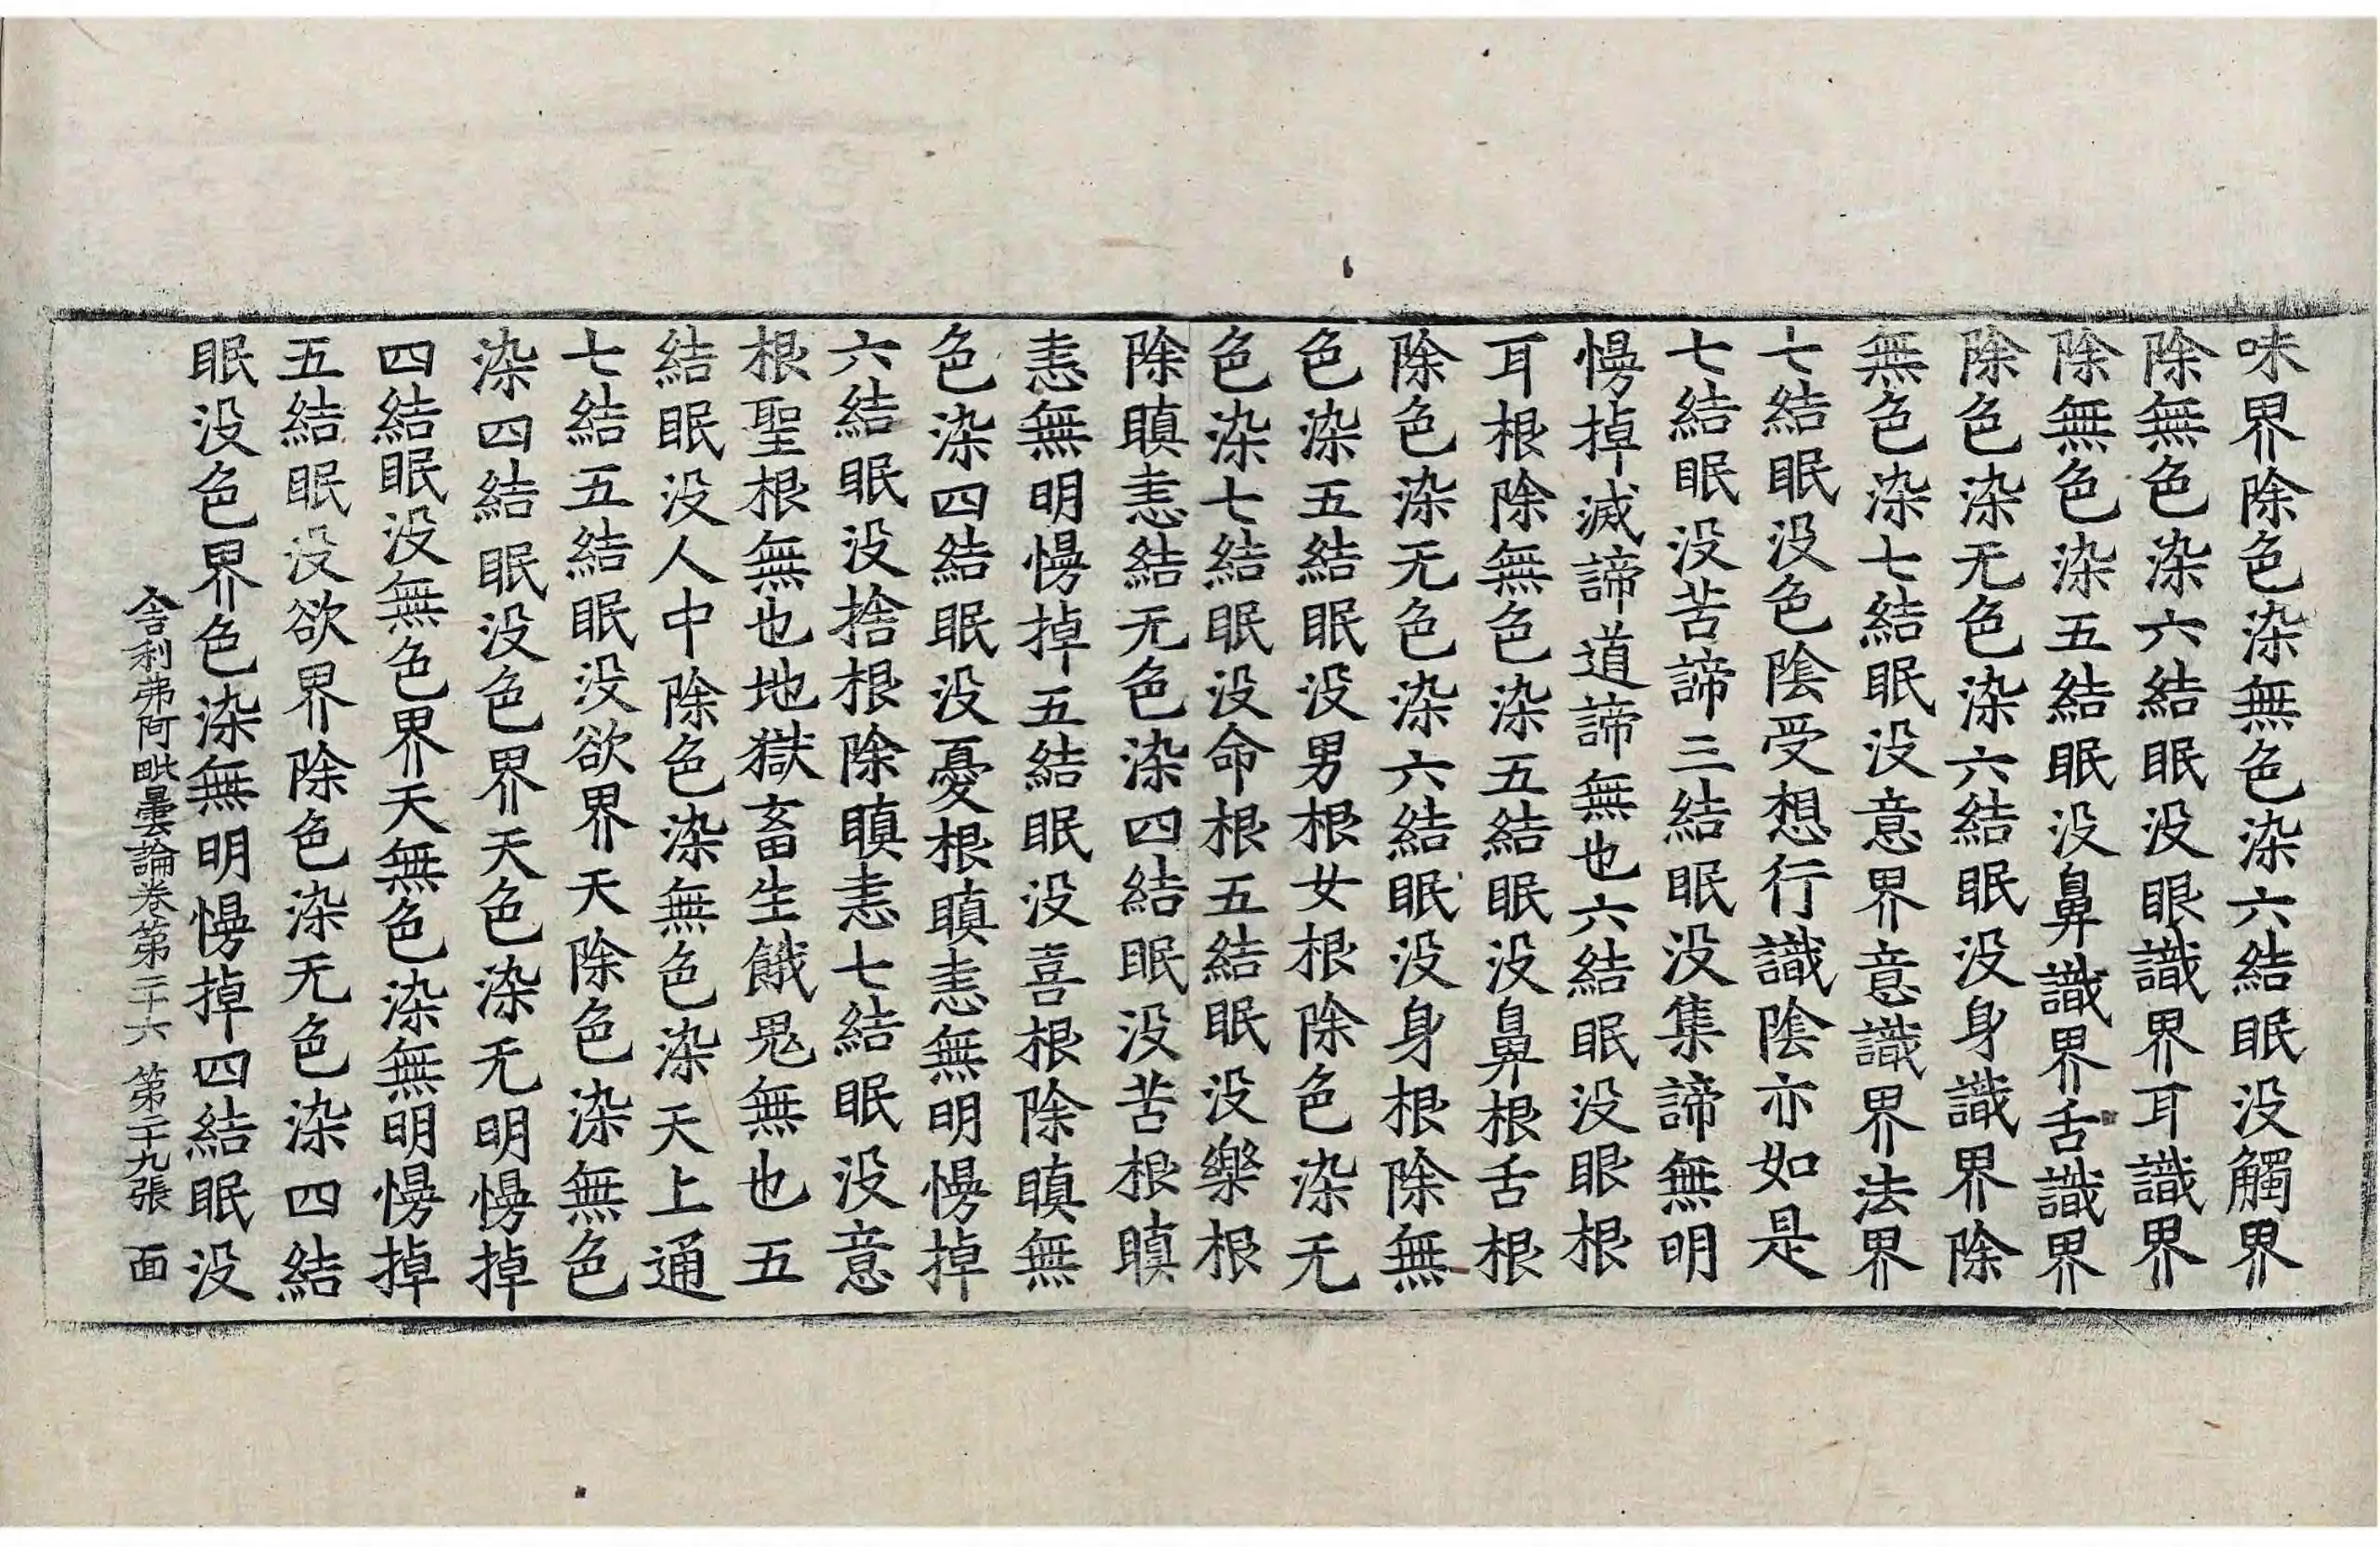 味界除色染無色染六結眠没觸界
除無色染六結眠没眼識界耳識界
除無色染五結眠没鼻識界舌識界
除色染无色染六結眠没身識界除
無色染七結眠没意界意識界法界
七結眠没色陰受想行識陰亦如是
七結眠没苦諦三結眠没集諦無明
慢掉滅諦道諦無也六結眠没眼根
耳根除無色染五結眠没鼻根舌根
除色染无色染六結眠没身根除無
色染五結眠没男根女根除色染无
色染七結眠没命根五結眠没樂根
除瞋恚結无色染四結眠没苦根瞋
恚無明慢掉五結眠没喜根除瞋無
色染四結眠没憂根瞋恚無明慢掉
六結眠没捨根除瞋恚七結眠没意
根聖根無也地獄畜生餓鬼無也五
結眠没人中除色染無色染天上通
七結五結眠没欲界天除色染無色
染四結眠没色界天色染无明慢掉
四結眠没無色界天無色染無明慢掉
五結眠没欲界除色染无色染四結
眠没色界色染無明慢掉四結眠没
舍利弗阿毗曇論卷第二十六 第二十九張 面